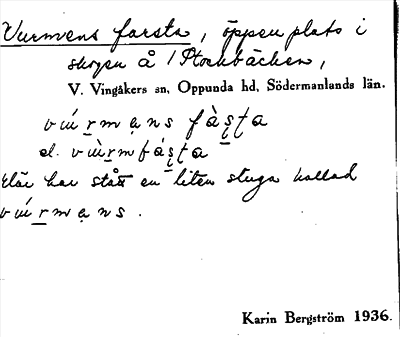 Vurmens farsta, öppen plats i
skogen å /Stockbäcken,
V. Vingåkers sn, Oppunda hd, Södermanlands län.
vúrmạns fàs̨ṭa
el. vùrmfás̨ṭa
där har stått en liten stuga kallad
vúrmạns.
Karin Bergström 1936.